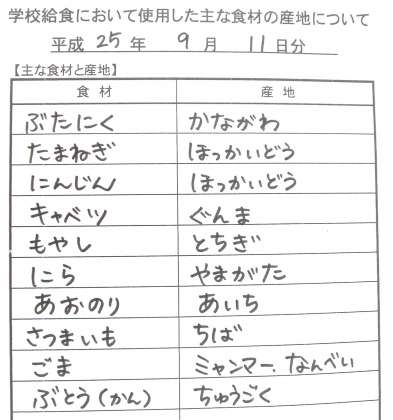 学校給食において使用した主な食材の産地について
平成 25 年 9 月 11 日分
【主な食材と産地】
食材 産地
ぶたにく かながわ
たまねぎ ほっかいどう
にんじん ほっかいどう
キャベツ ぐんま
もやし とちぎ
にら やまがた
あおのり あいち
さつまいも ちば
ごま ミャンマー、なんべい
ぶどう(かん) ちゅうごく